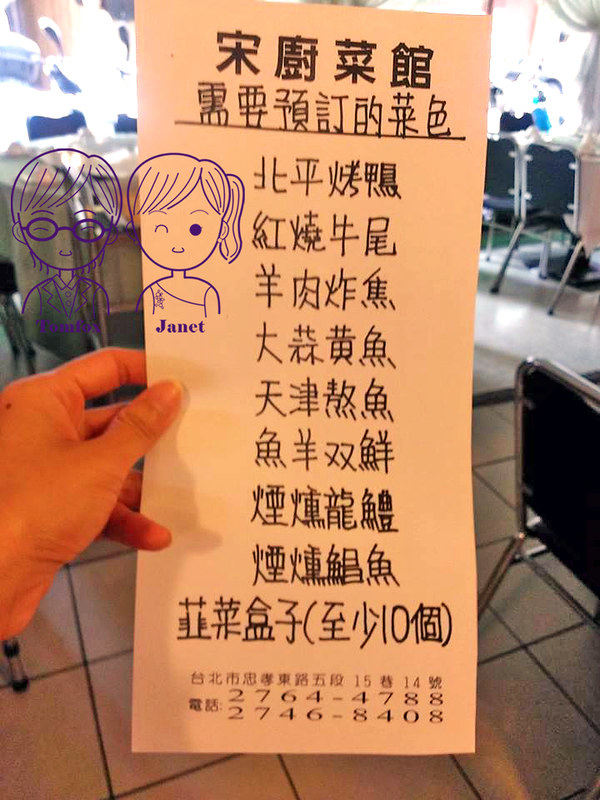 宋廚菜館
需要預訂的菜色
北平烤鴨
紅燒牛尾
羊肉炸焦
大蒜黃魚
天津熬魚
魚羊双鮮
煙燻龍鱧
煙燻鯧魚
韭菜盒子(至少10個)
台北市忠孝東路五段15巷14號
電話:2764-4788
2746-8408
Tomfox
Janet